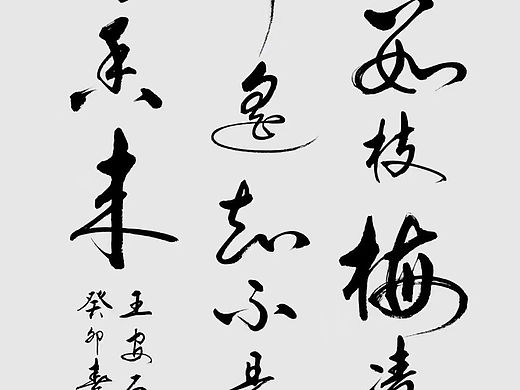 数枝梅凌
遥知不是
香来
王安石
癸卯